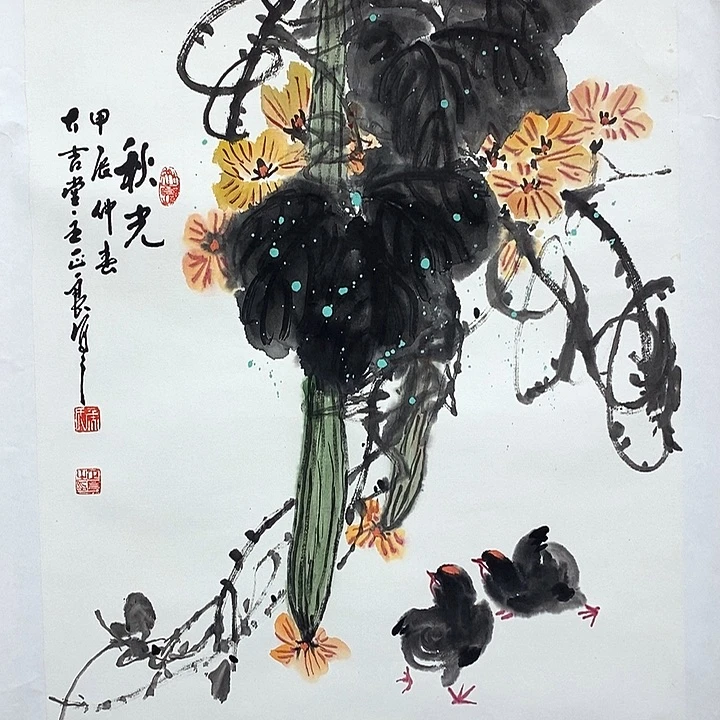 秋光
甲辰仲春
大吉堂主正良写